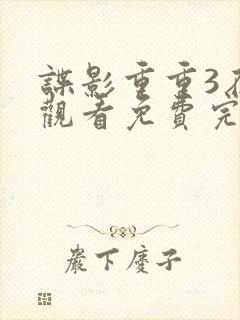 諜影重重3在
觀看免費完
嚴下慶子